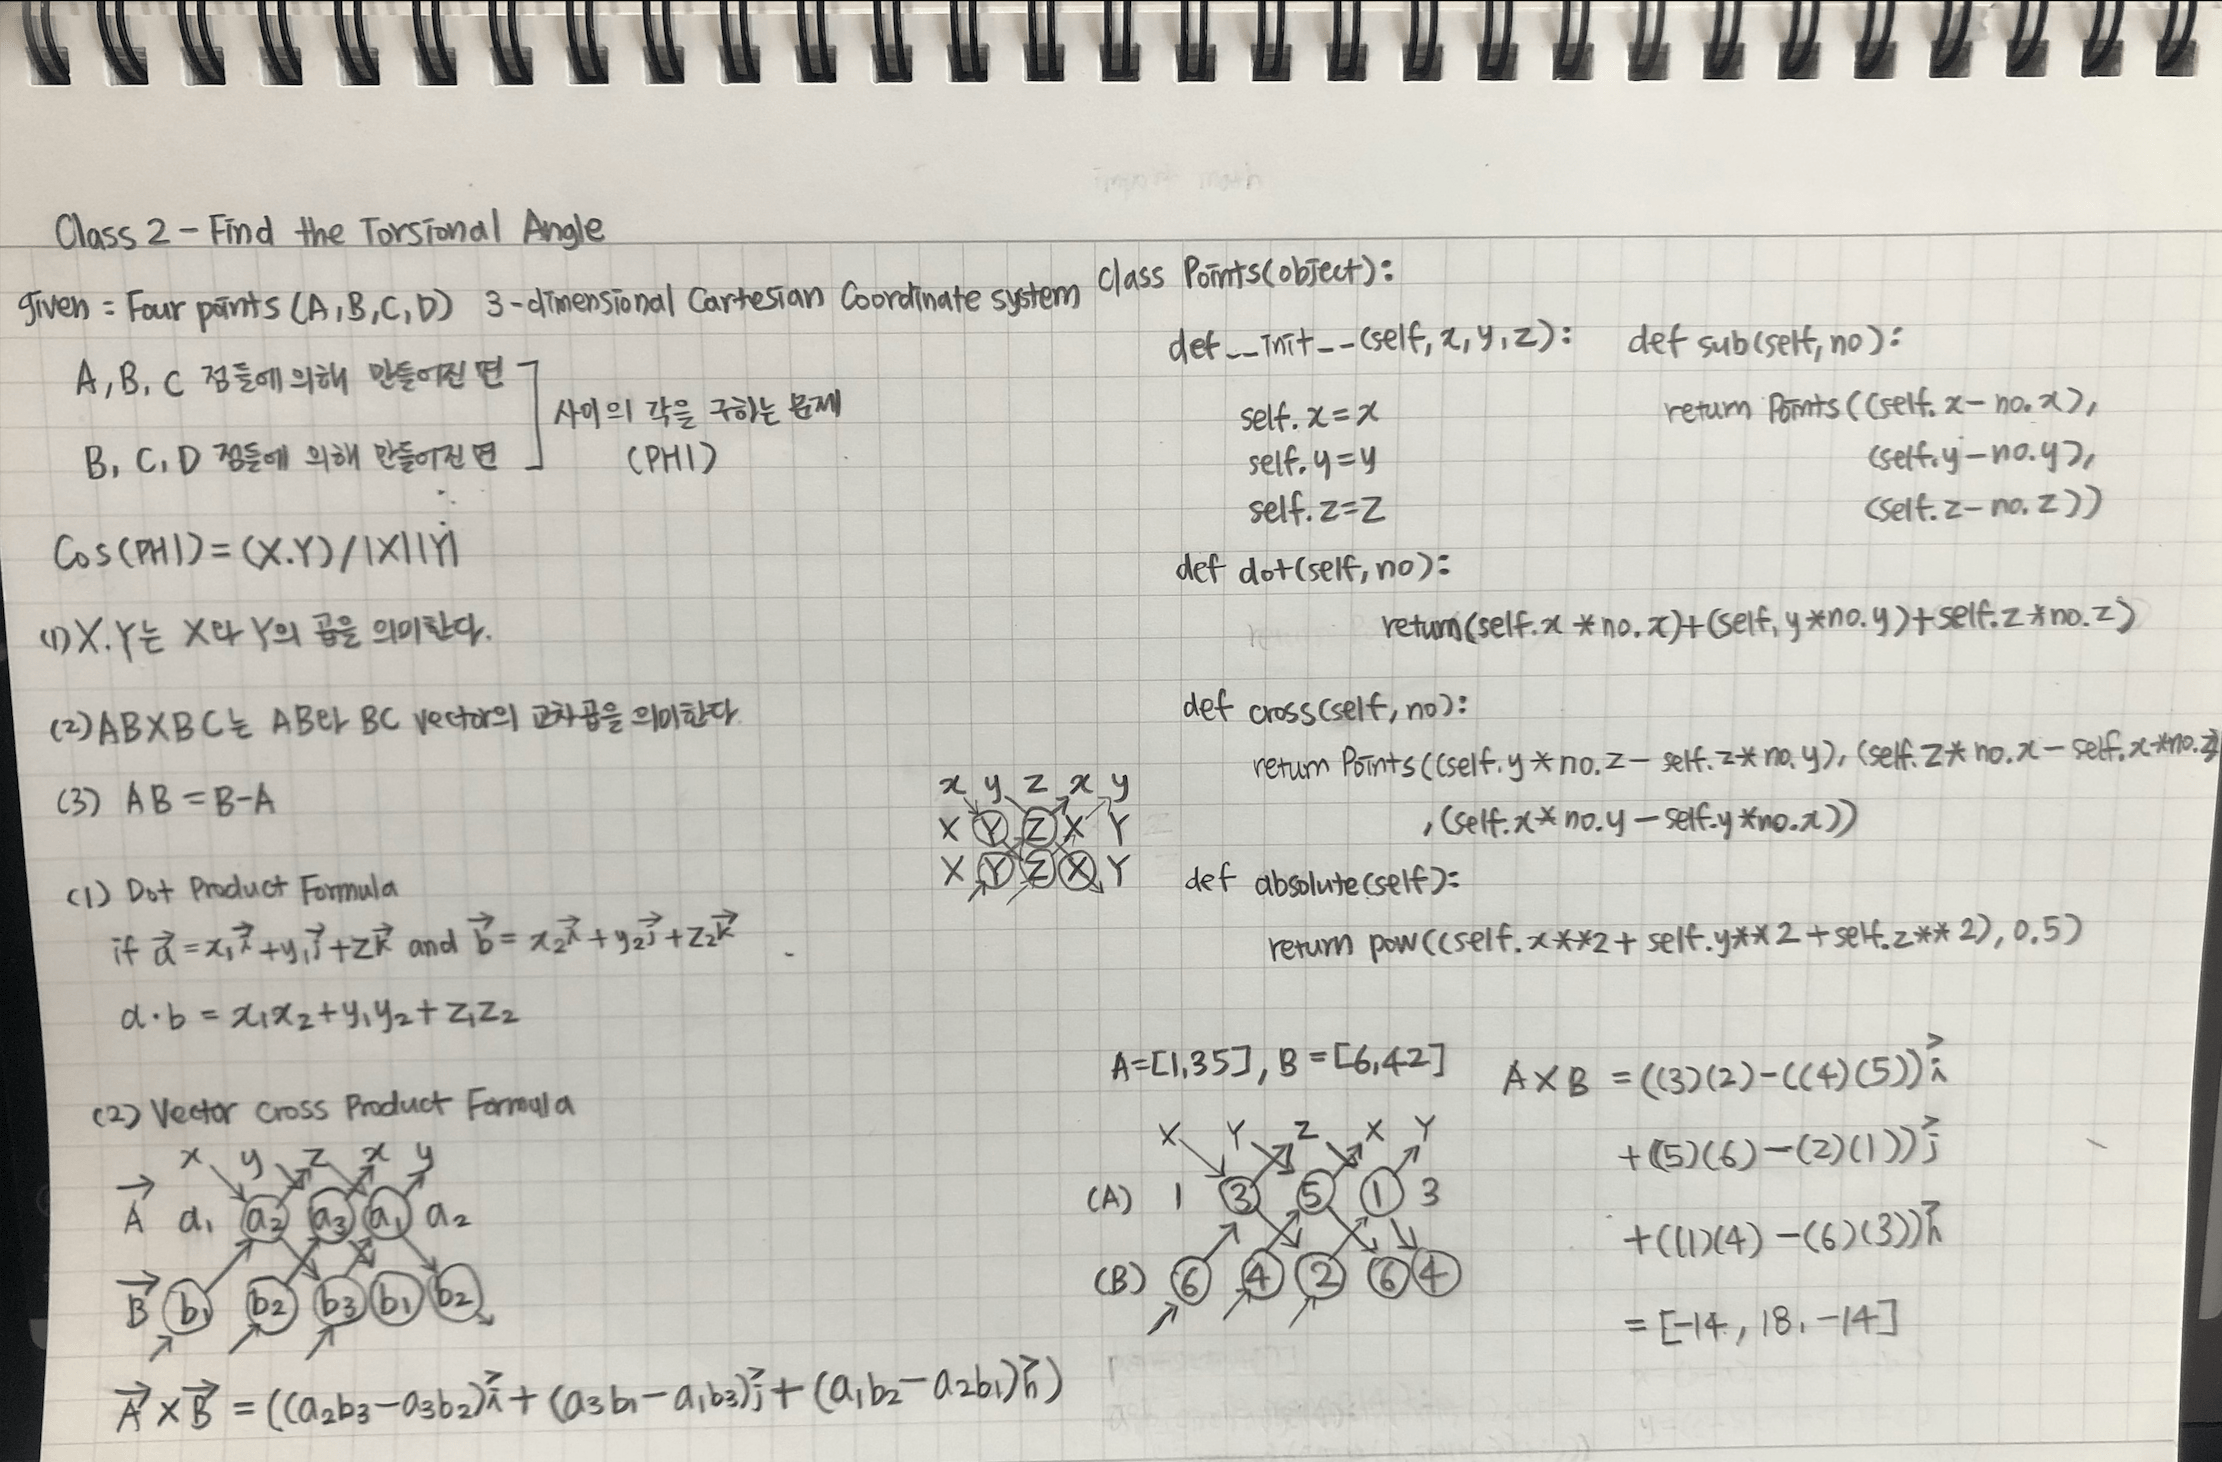 Class 2 - Find the Torsional Angle
given = Four points (A, B, C, D) 3-dimensional Cartesian Coordinate system
A, B, C 점들에 의해 만들어진 면
사이의 각을 구하는 문제
B, C, D 점들에 의해 만들어진 면
(PHI)
Cos(PHI) = (X.Y)/|X||Y|
(1) X.Y는 X와 Y의 곱을 의미한다.
(2) ABXBC는 AB와 BC vector의 교차곱을 의미한다.
(3) AB = B-A
(1) Dot Product Formula
if a⃗ = x₁i⃗ + y₁j⃗ + zk⃗ and b⃗ = x₂i⃗ + y₂j⃗ + z₂k⃗
a·b = x₁x₂ + y₁y₂ + z₁z₂
(2) Vector cross Product Formula
x y z x y
A⃗ a₁ a₂ a₃ a₁ a₂
B⃗ b₁ b₂ b₃ b₁ b₂
A⃗ × B⃗ = ((a₂b₃-a₃b₂)i⃗ + (a₃b₁-a₁b₃)j⃗ + (a₁b₂-a₂b₁)k⃗)
x y z x y
X Y Z X Y
X Y Z X Y
class Points(object):
def __init__(self, x, y, z):
self.x = x
self.y = y
self.z = z
def sub(self, no):
return Points((self.x - no.x),
(self.y - no.y),
(self.z - no.z))
def dot(self, no):
return(self.x * no.x)+(self.y * no.y)+self.z * no.z)
def cross(self, no):
return Points((self.y * no.z - self.z * no.y), (self.z * no.x - self.x * no.z)
,(self.x * no.y - self.y * no.x))
def absolute(self):
return pow((self.x**2 + self.y**2 + self.z**2), 0.5)
A=[1,35], B=[6,42]
X Y Z X Y
(A) 1 3 5 1 3
(B) 6 4 2 6 4
A X B = ((3)(2)-((4)(5))i⃗
+((5)(6)-(2)(1))j⃗
+((1)(4)-(6)(3))k⃗
= [-14, 18, -14]